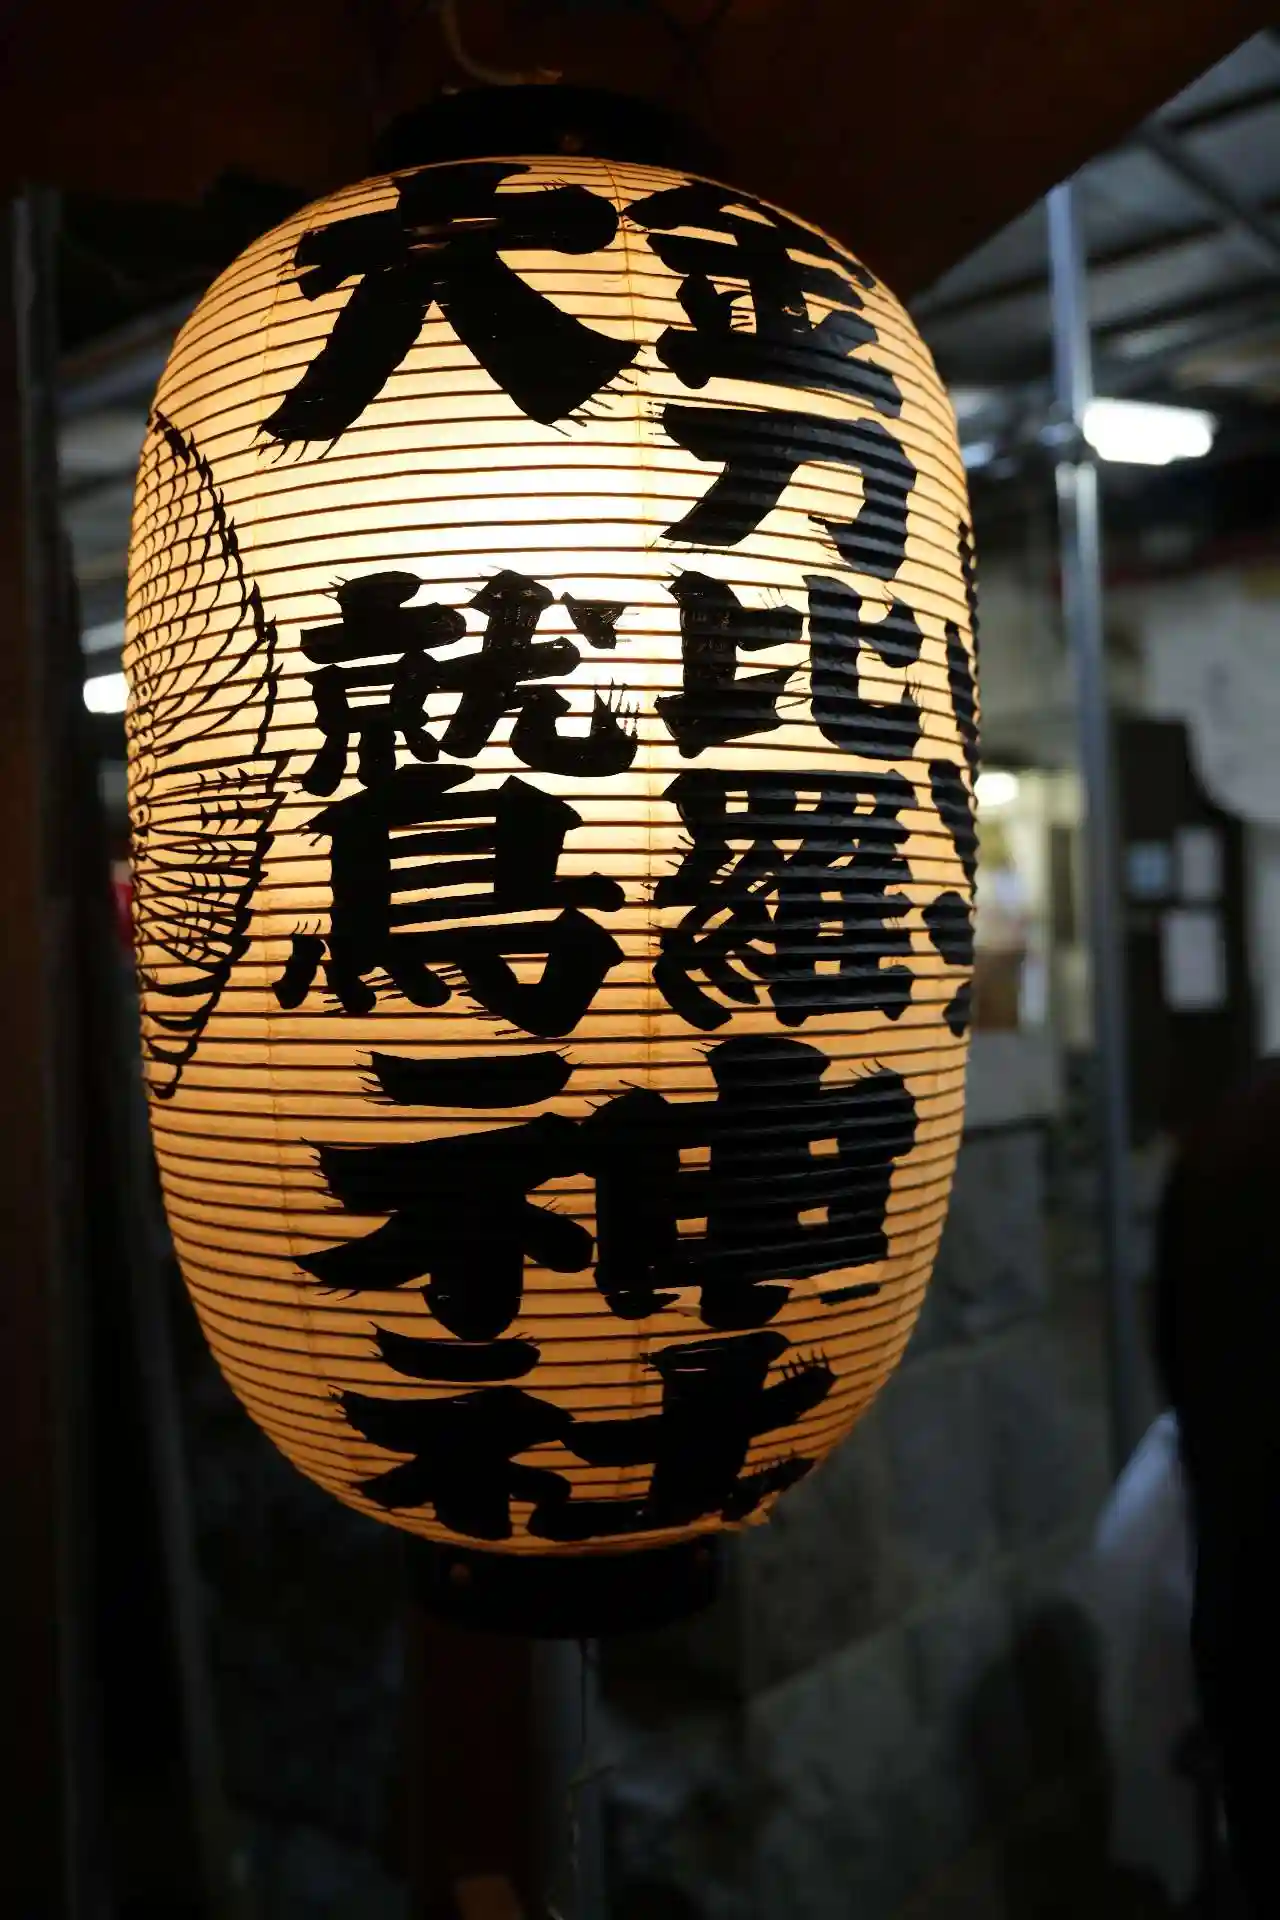 金刀比羅
大鷲
神社